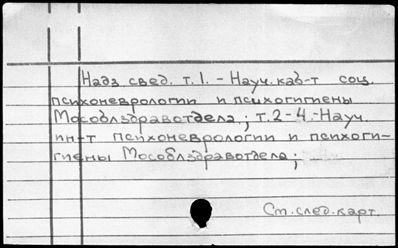 Надз свед. т.1. - Науч. каб-т соц.
психоневрологии и психогигиены
Мособлздравотдела; т.2-4.-Науч.
ин-т психоневрологии и психоги-
гиены Мособлздравотдела;
См. след. карт.